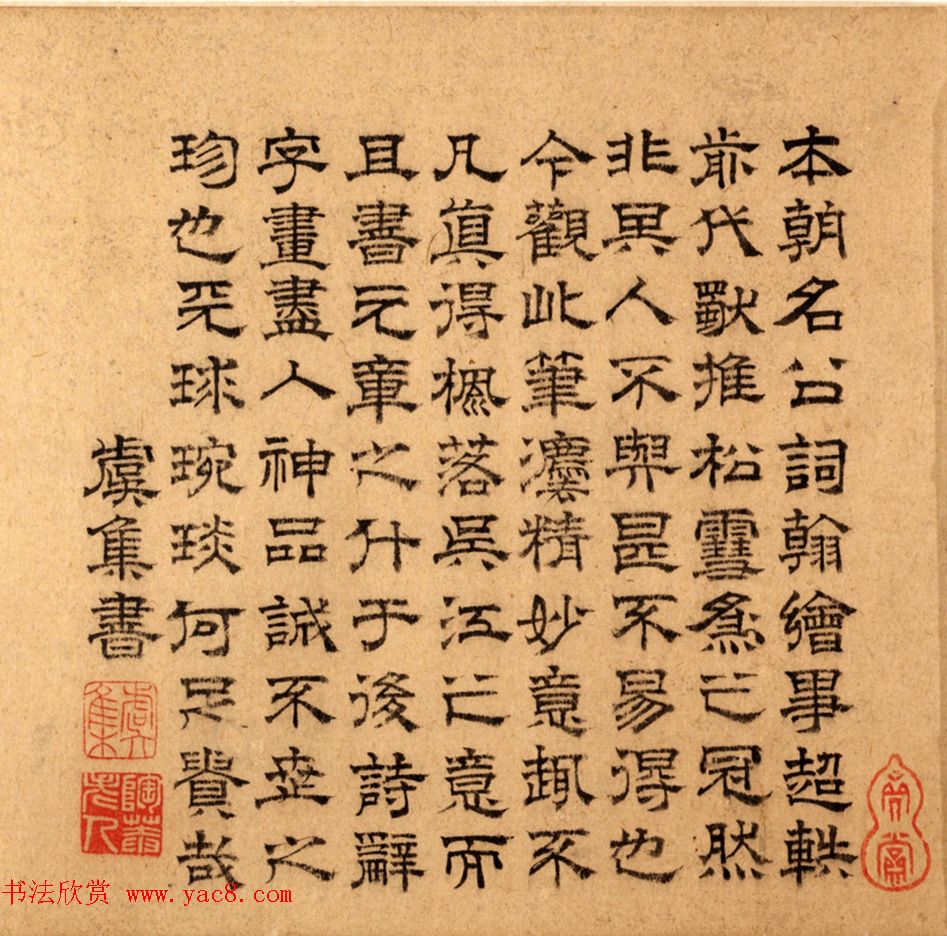 本朝名公詞翰繪事超軼
前代獨推松雪爲之冠然
非異人不與甚不易得也
今觀此筆灋精妙意趣不
凡眞得楓落吳江之意而
且書元章之什于後詩辭
字畫盡人神品誠不世之
珍也天球琬琰何足貴哉
虞集書
虞集
书法欣赏 www.yac8.com